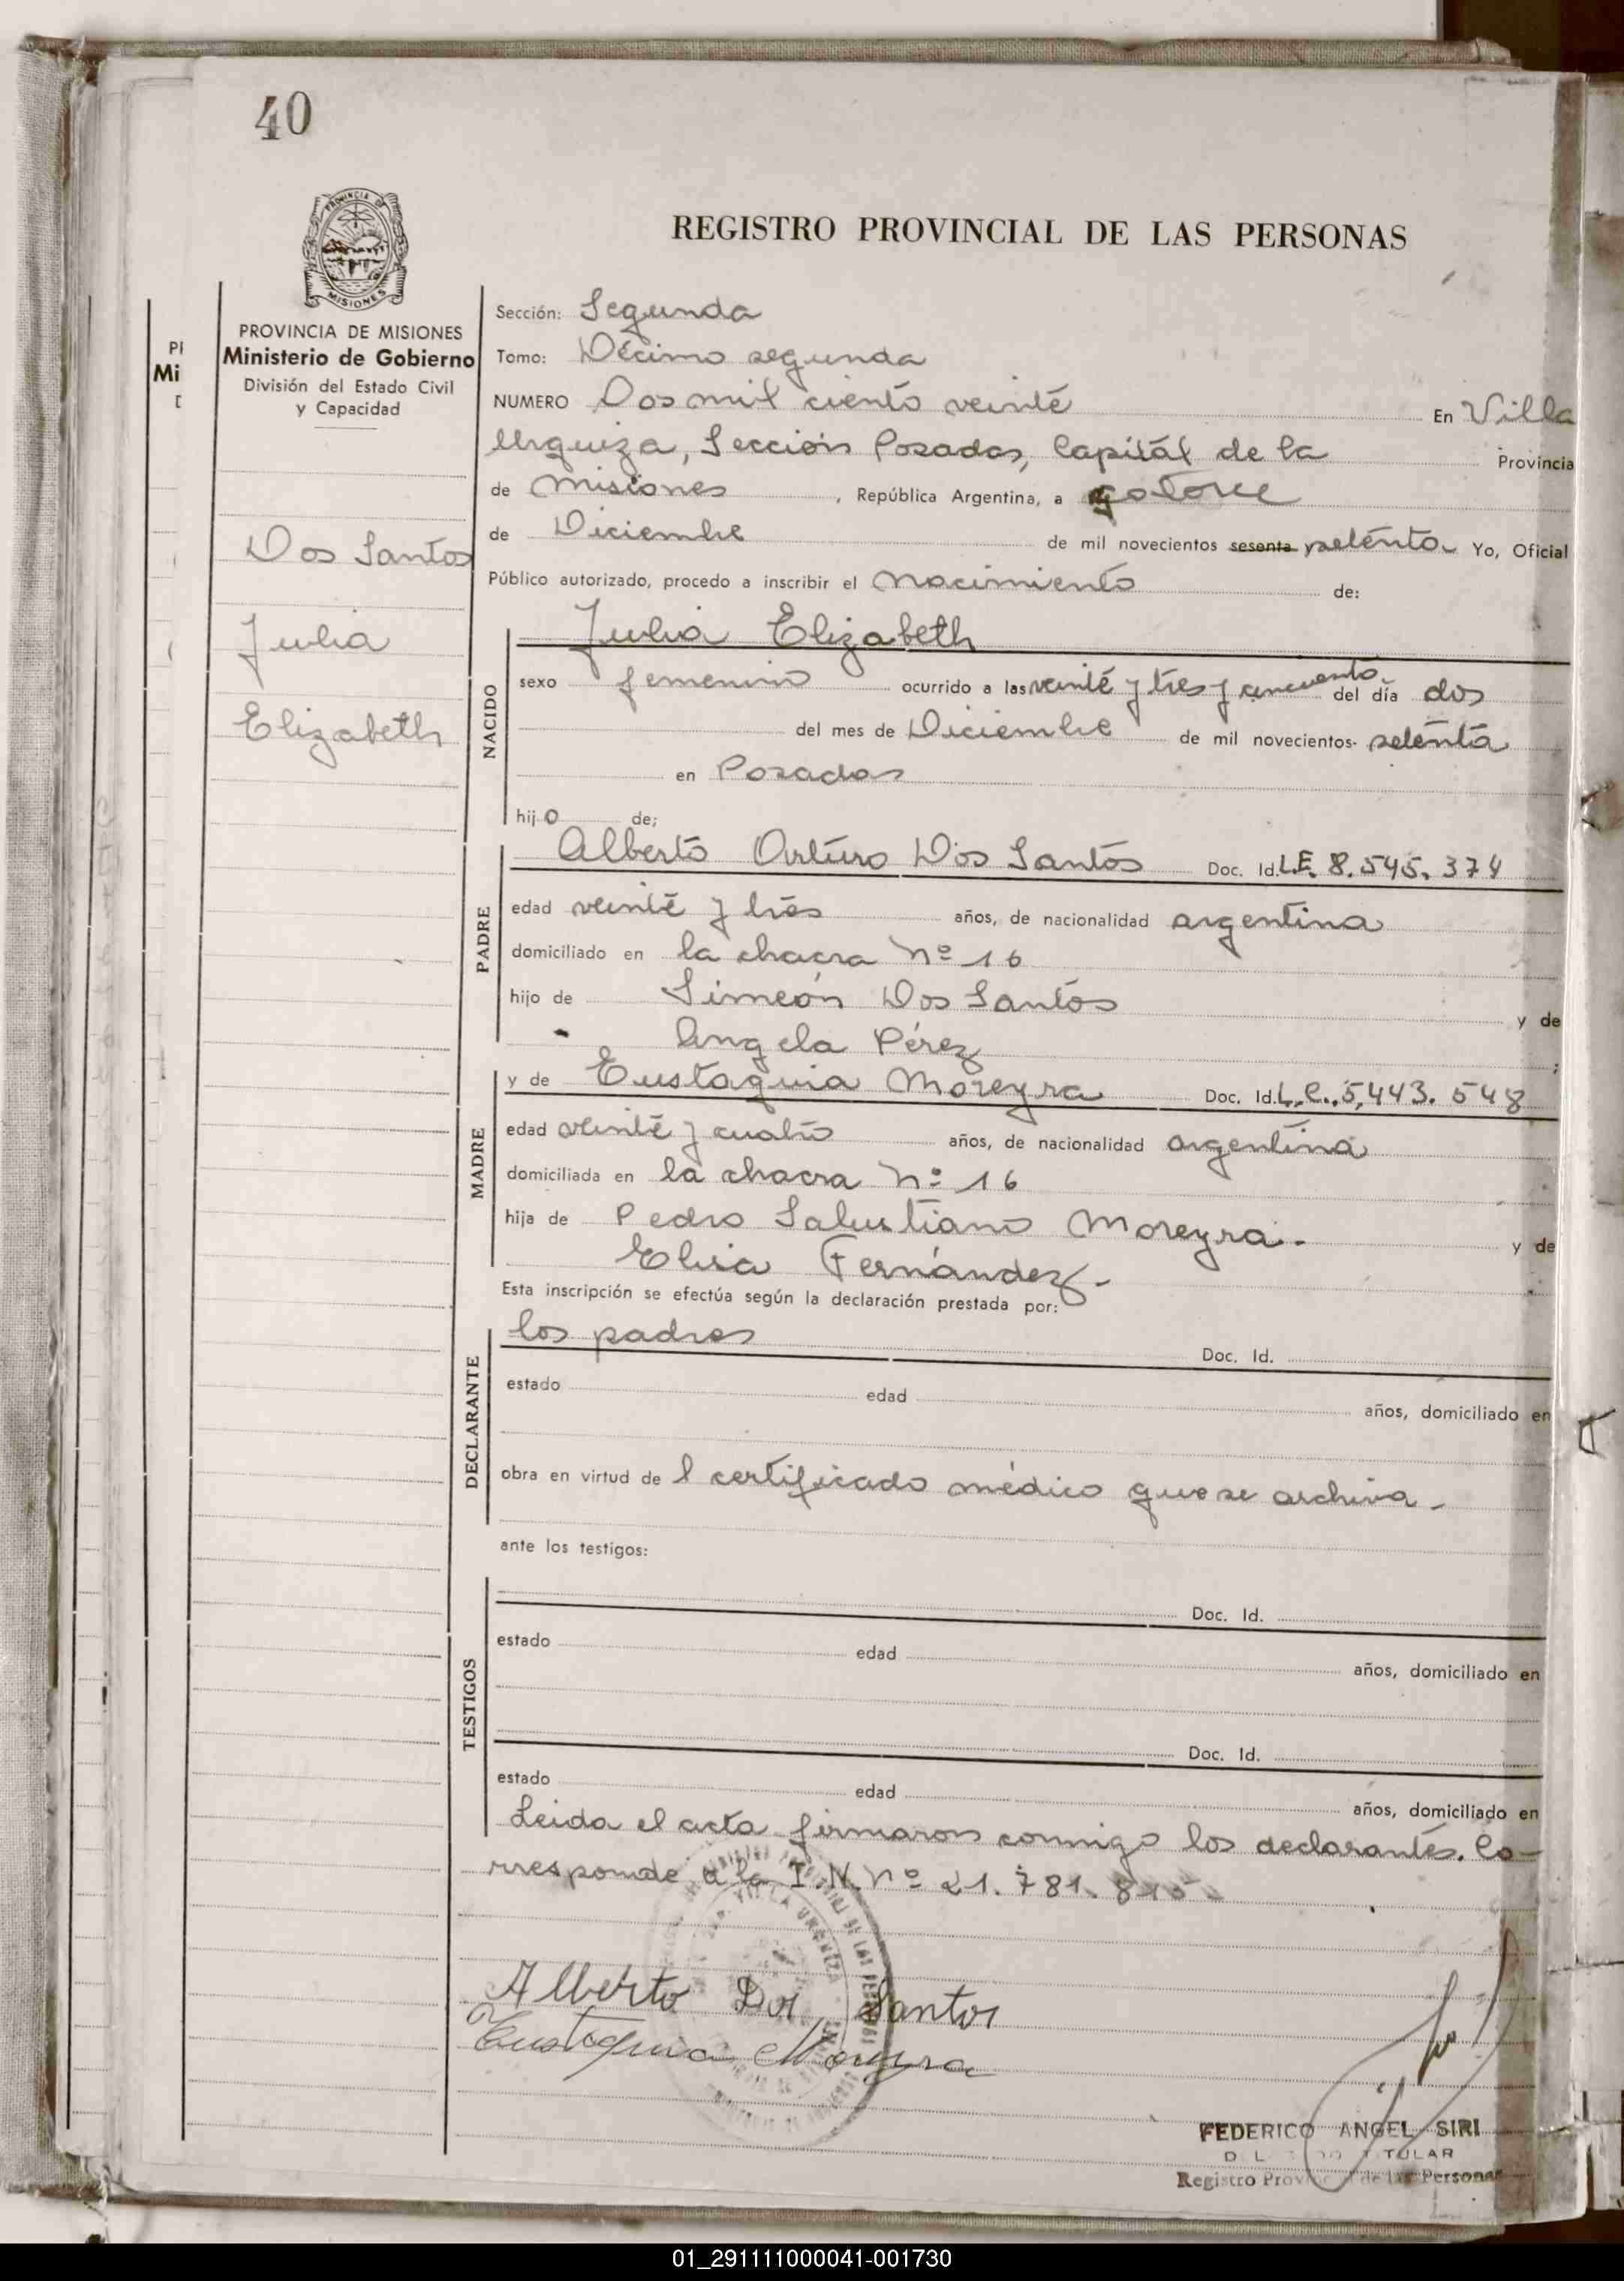 40
PROVINCIA DE
MISIONES
REGISTRO PROVINCIAL DE LAS PERSONAS
PROVINCIA DE MISIONES
Ministerio de Gobierno
División del Estado Civil
y Capacidad
PI
Mi
Dos Santos
Julia
Elizabeth
Sección: Segunda
Tomo: Décimo segunda
NUMERO Dos mil ciento veinte En Villa
Urquiza, Sección Posadas, Capital de la Provincia
de Misiones, República Argentina, a catorce
de Diciembre de mil novecientos sesenta y setenta. Yo, Oficial
Público autorizado, procedo a inscribir el nacimiento de:
NACIDO
Julia Elizabeth
sexo femenino ocurrido a las veinte y tres y cincuenta del día dos
del mes de Diciembre de mil novecientos setenta
en Posadas
hijo de;
PADRE
Alberto Arturo Dos Santos Doc. Id. L.E. 8.545.374
edad veinte y tres años, de nacionalidad argentina
domiciliado en la chacra Nº 16
hijo de Simeón Dos Santos y de
Angela Pérez ;
MADRE
y de Eustaquia Moreyra Doc. Id. L.C. 5,443.548
edad veinte y cuatro años, de nacionalidad argentina
domiciliada en la chacra Nº 16
hija de Pedro Salustiano Moreyra. y de
Elisa Fernández.-
Esta inscripción se efectúa según la declaración prestada por:
DECLARANTE
los padres Doc. Id.
estado edad años, domiciliado en
obra en virtud de l certificado médico que se archiva.-
ante los testigos:
TESTIGOS
Doc. Id.
estado edad años, domiciliado en
Doc. Id.
estado edad años, domiciliado en
Leida el acta firmaron conmigo los declarantes. Co-
rresponde a la I.N. Nº 21.781.815
Alberto Dos Santos
Eustaquia Moreyra
FEDERICO ANGEL SIRI
TITULAR
Registro Provincial de las Personas
01_291111000041-001730